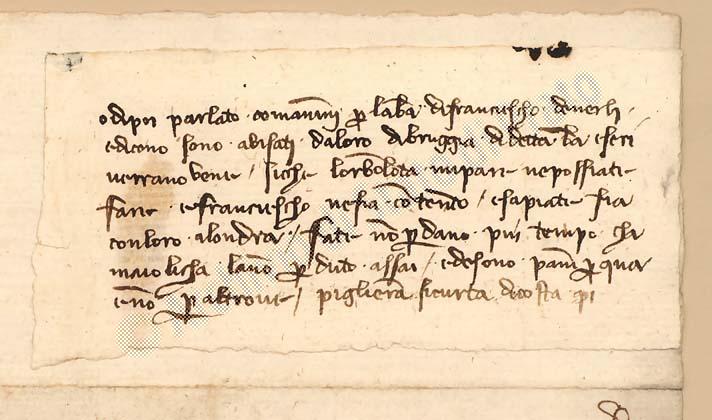 odipoi parlato comannini per laba di franciescho denerli
e dicono sono avisati daloro dibruggia di detta ba e seri
verrano bene / siche lorbolota mipare ne possiate
fare e franciescho nesia contento / e sapiate sia
conloro alondra / fate non perdano piu tempo cha
maiolicha lano perduto assai / ed e sono pani per qua
e no per altrove / piglierà sicurta di costa